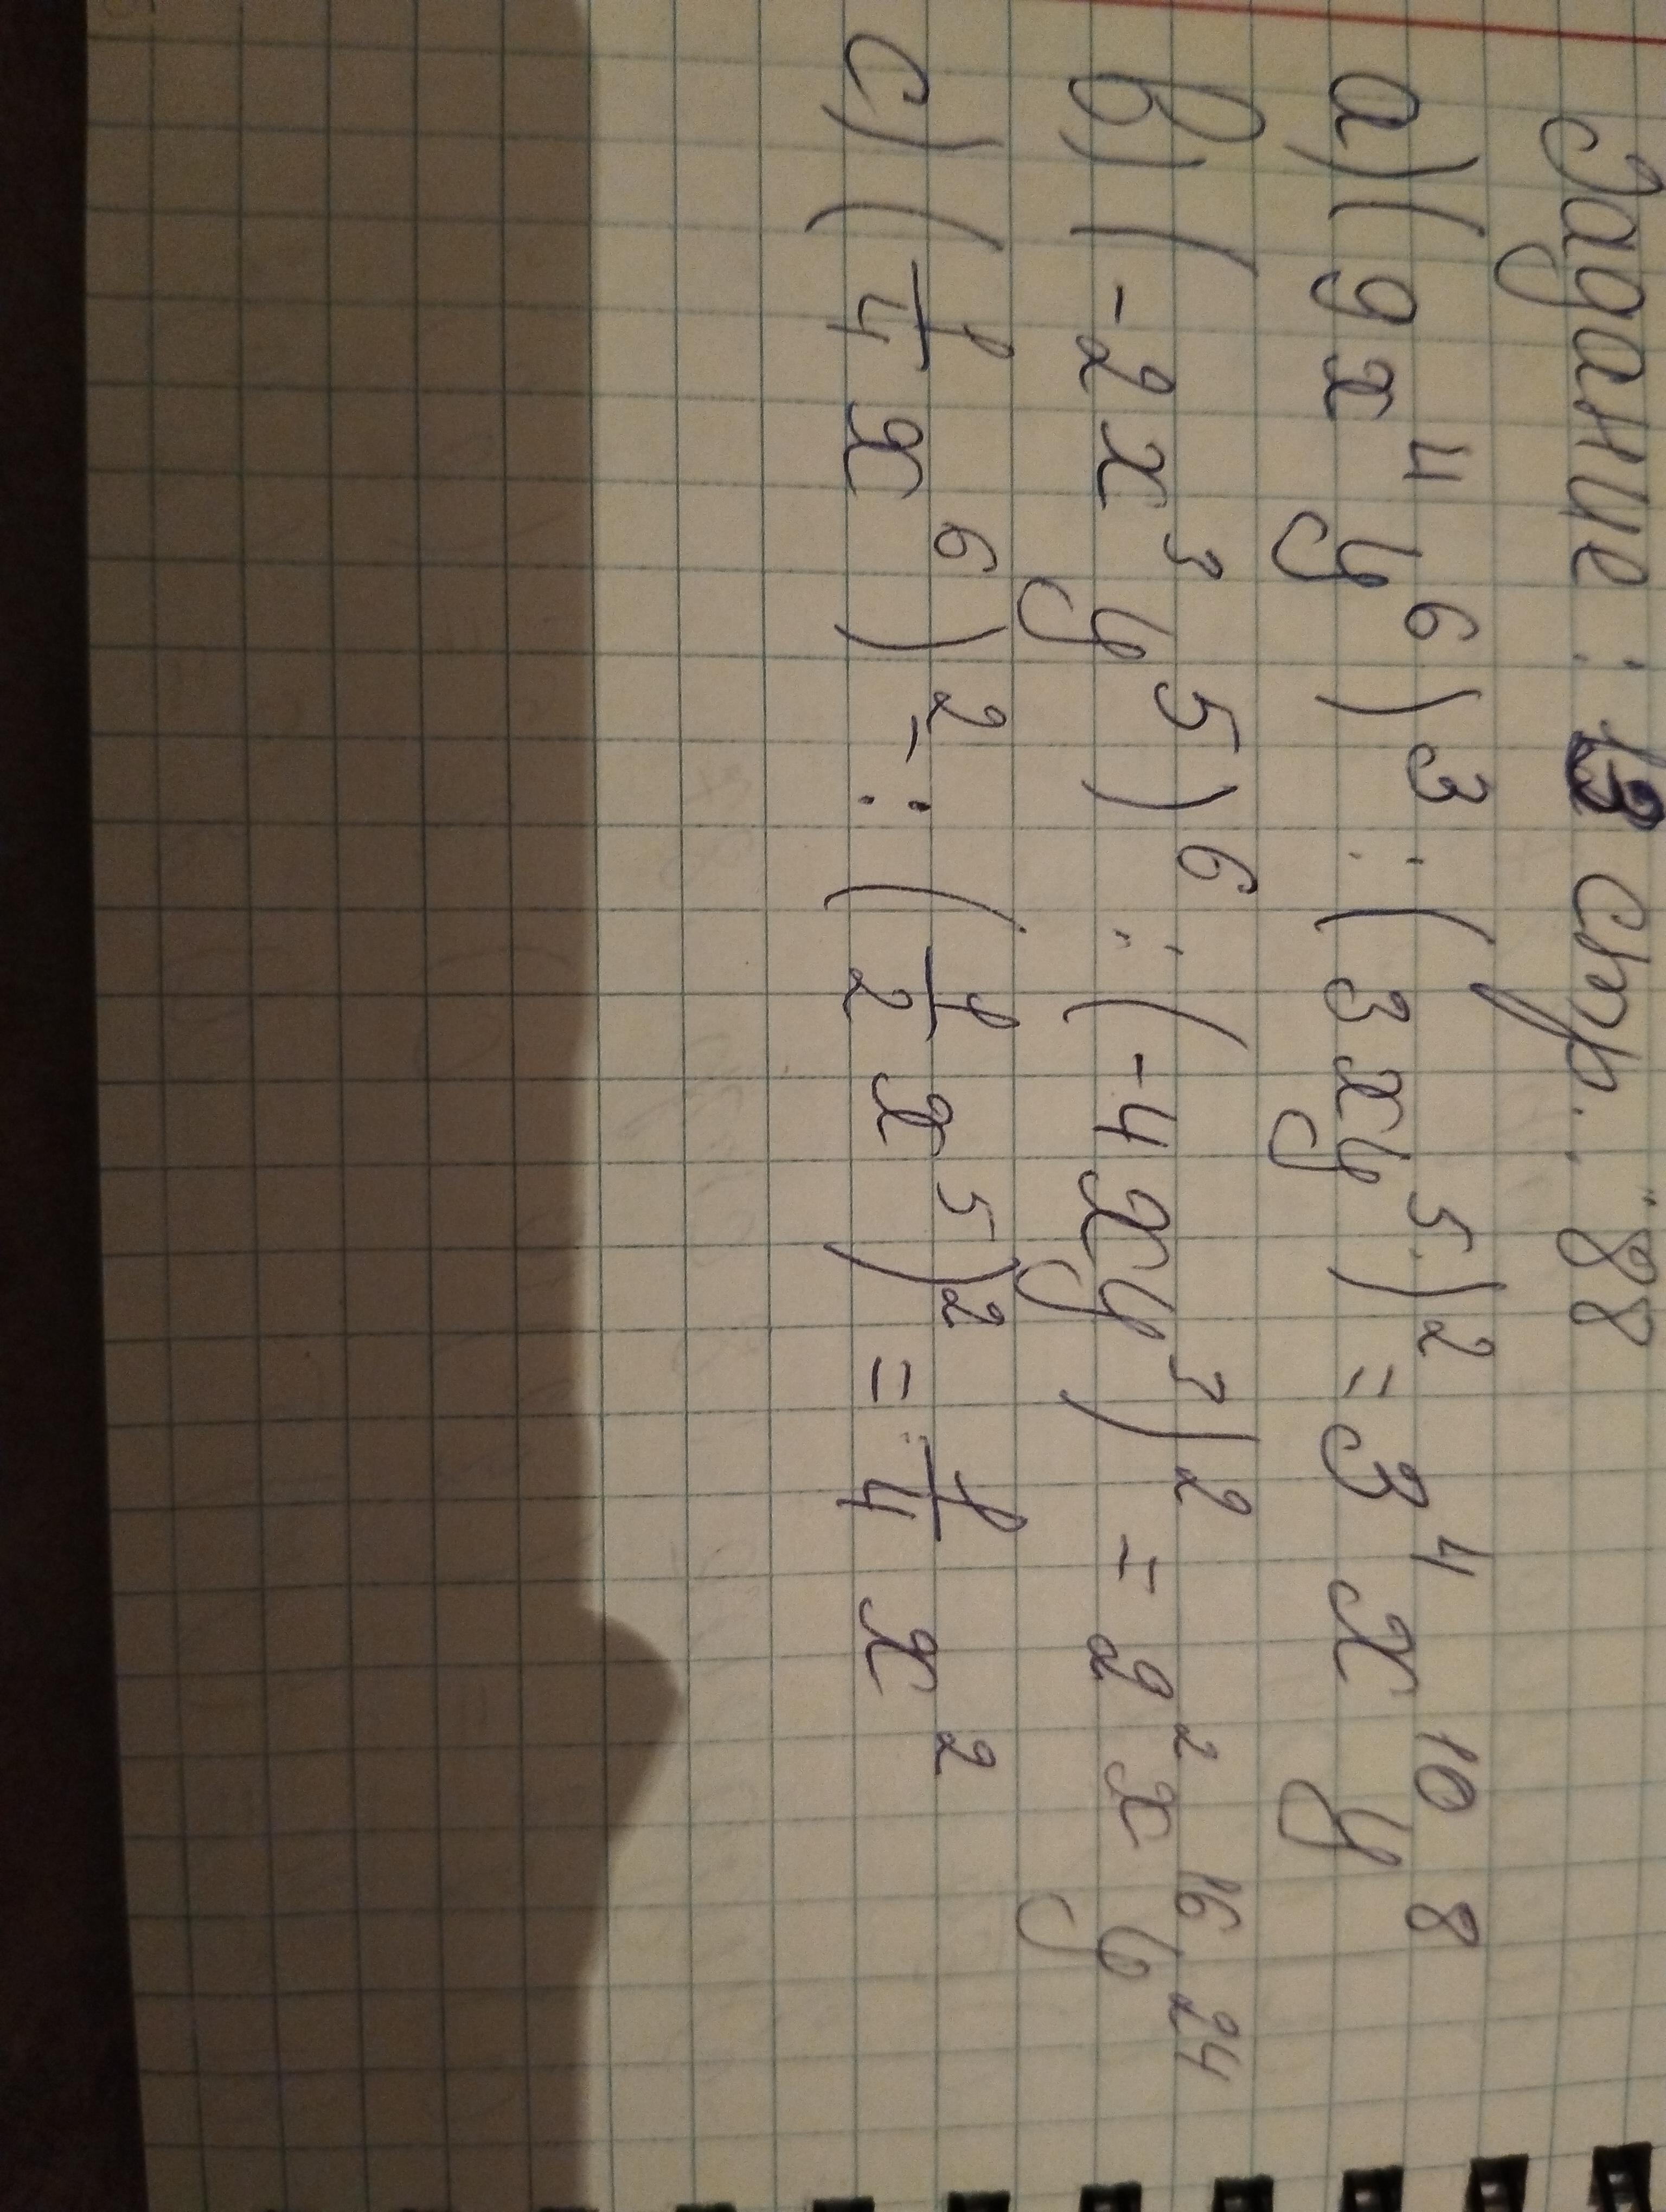 Задание : 13 стр. 88
a) (9x⁴y⁶)³ : (3xy⁵)² = 3⁴x¹⁰y⁸
в) (-2x³y⁵)⁶ : (-4xy³)² = 2²x¹⁶y²⁴
c) (1/4 x⁶)² : (1/2 x⁵)² = 1/4 x²